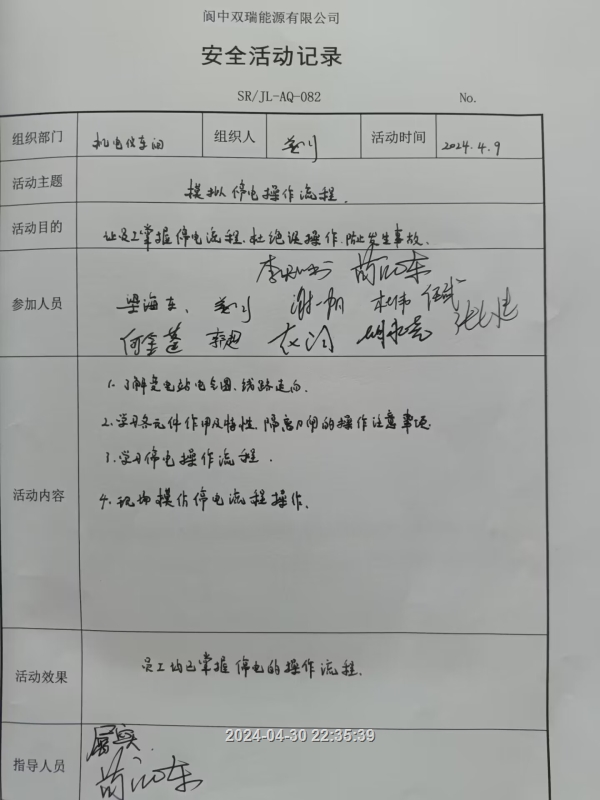 阆中双瑞能源有限公司
安全活动记录
SR/JL-AQ-082 No.
组织部门 机电仪车间 组织人 活动时间 2024.4.9
活动主题 模拟停电操作流程.
活动目的 让员工掌握停电流程.杜绝误操作.防止发生事故.
参加人员
梁海东、 谢一帆 杜伟 伍斌
何金蓬 李超
活动内容
1.了解变电站电气图、线路走向.
2.学习各元件作用及特性.隔离刀闸的操作注意事项.
3.学习停电操作流程.
4.现场模仿停电流程操作.
活动效果 员工均已掌握停电的操作流程.
2024-04-30 22:35:39
指导人员 属实.